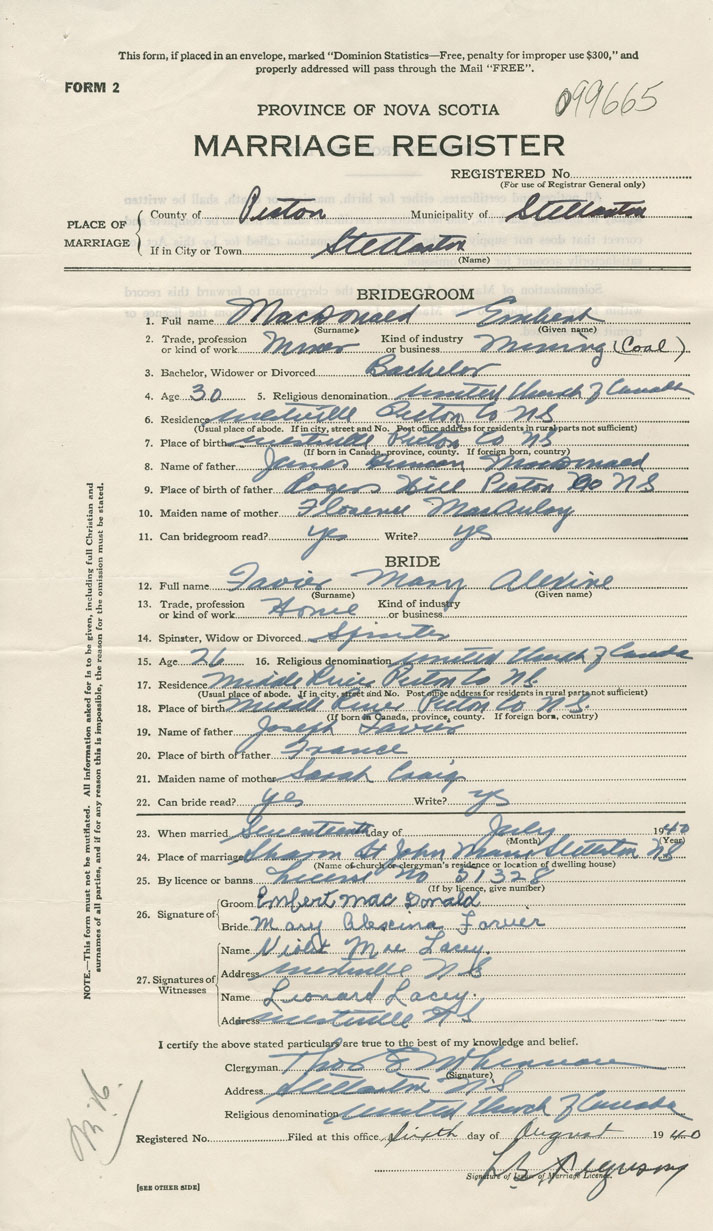 This form, if placed in an envelope, marked "Dominion Statistics—Free, penalty for improper use $300," and
properly addressed will pass through the Mail "FREE".
FORM 2
099665
PROVINCE OF NOVA SCOTIA
MARRIAGE REGISTER
REGISTERED No.
(For use of Registrar General only)
PLACE OF MARRIAGE
County of Pictou Municipality of Stellarton
If in City or Town Stellarton
(Name)
BRIDEGROOM
1. Full name MacDonald Embert
(Surname) (Given name)
2. Trade, profession or kind of work Miner Kind of industry or business Mining (Coal)
3. Bachelor, Widower or Divorced Bachelor
4. Age 30 5. Religious denomination United Church of Canada
6. Residence Westville Pictou Co NS
(Usual place of abode. If in city, street and No. Post office address for residents in rural parts not sufficient)
7. Place of birth Westville Pictou Co NS
(If born in Canada, province, county. If foreign born, country)
8. Name of father James Duncan MacDonald
9. Place of birth of father Rogers Hill Pictou Co NS
10. Maiden name of mother Florence MacAulay
11. Can bridegroom read? yes Write? yes
BRIDE
12. Full name Favier Mary Alexine
(Surname) (Given name)
13. Trade, profession or kind of work Home Kind of industry or business
14. Spinster, Widow or Divorced Spinster
15. Age 26 16. Religious denomination United Church of Canada
17. Residence Middle River Pictou Co NS
(Usual place of abode. If in city, street and No. Post office address for residents in rural parts not sufficient)
18. Place of birth Middle River Pictou Co NS.
(If born in Canada, province, county. If foreign born, country)
19. Name of father Joseph Favier
20. Place of birth of father France
21. Maiden name of mother Sarah Craig
22. Can bride read? yes Write? yes
23. When married Seventeenth day of July 1940
(Month) (Year)
24. Place of marriage Sharon St John Manse Stellarton NS
(Name of church or clergyman's residence or location of dwelling house)
25. By licence or banns License No 51328
(If by licence, give number)
26. Signature of
Groom Embert MacDonald
Bride Mary Alexina Favier
27. Signatures of Witnesses
Name Violet Mae Lacey.
Address Westville N S
Name Leonard Lacey.
Address Westville N S
I certify the above stated particulars are true to the best of my knowledge and belief.
Clergyman Thos E
(Signature)
Address Stellarton N.S
Religious denomination United Church of Canada
Registered No. Filed at this office sixth day of August 1940
Ferguson
Signature of Issuer of Marriage Licence.
[SEE OTHER SIDE]
NOTE.—This form must not be mutilated. All information asked for is to be given, including full Christian and
surnames of all parties, and if for any reason this is impossible, the reason for the omission must be stated.